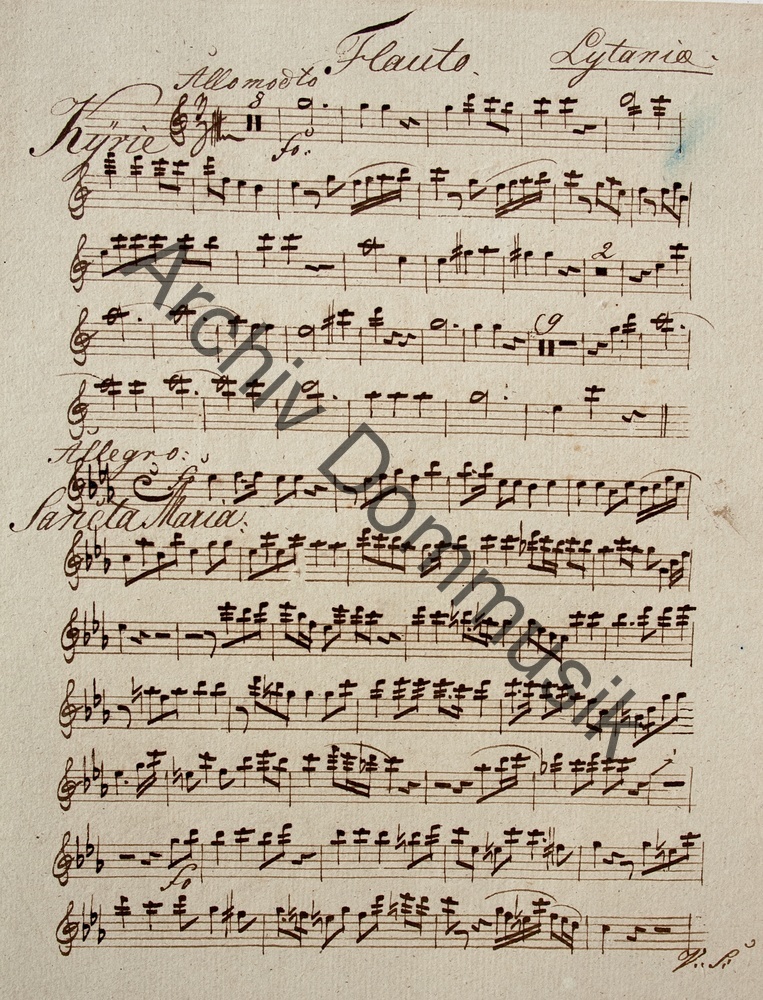 Flauto. Lytaniæ.
Allo modto
Kÿrie 8
fo:
2
9
Allegro:
fo
Sancta Maria:
fo
V: S:
Archiv Dommusik